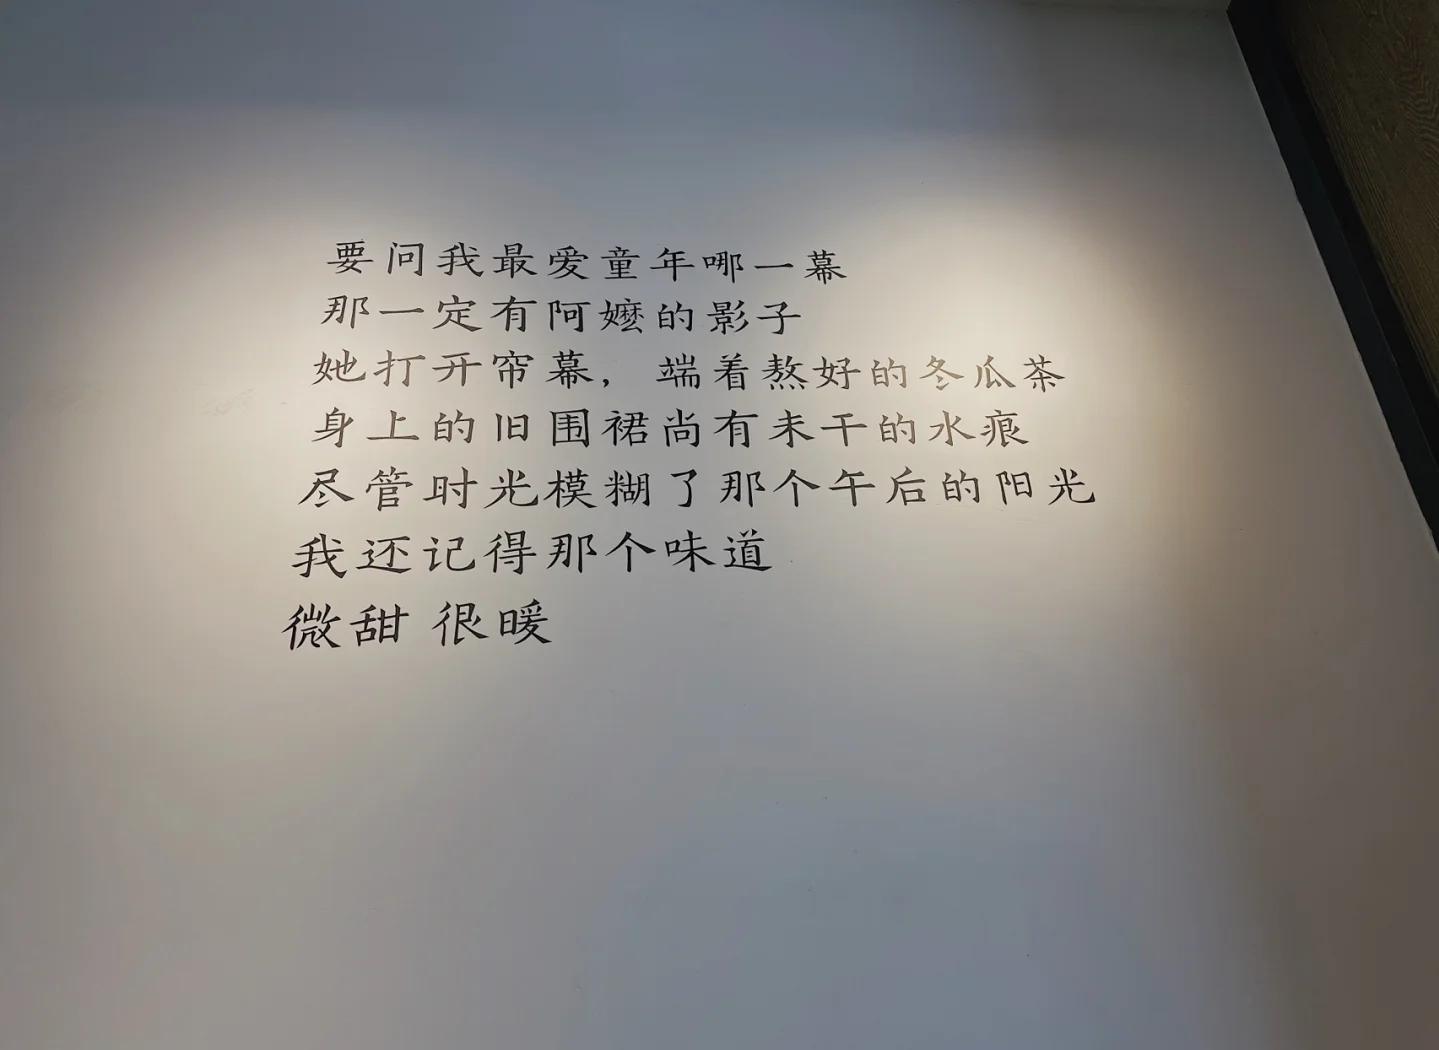 要问我最爱童年哪一幕
那一定有阿嬷的影子
她打开帘幕，端着熬好的冬瓜茶
身上的旧围裙尚有未干的水痕
尽管时光模糊了那个午后的阳光
我还记得那个味道
微甜 很暖